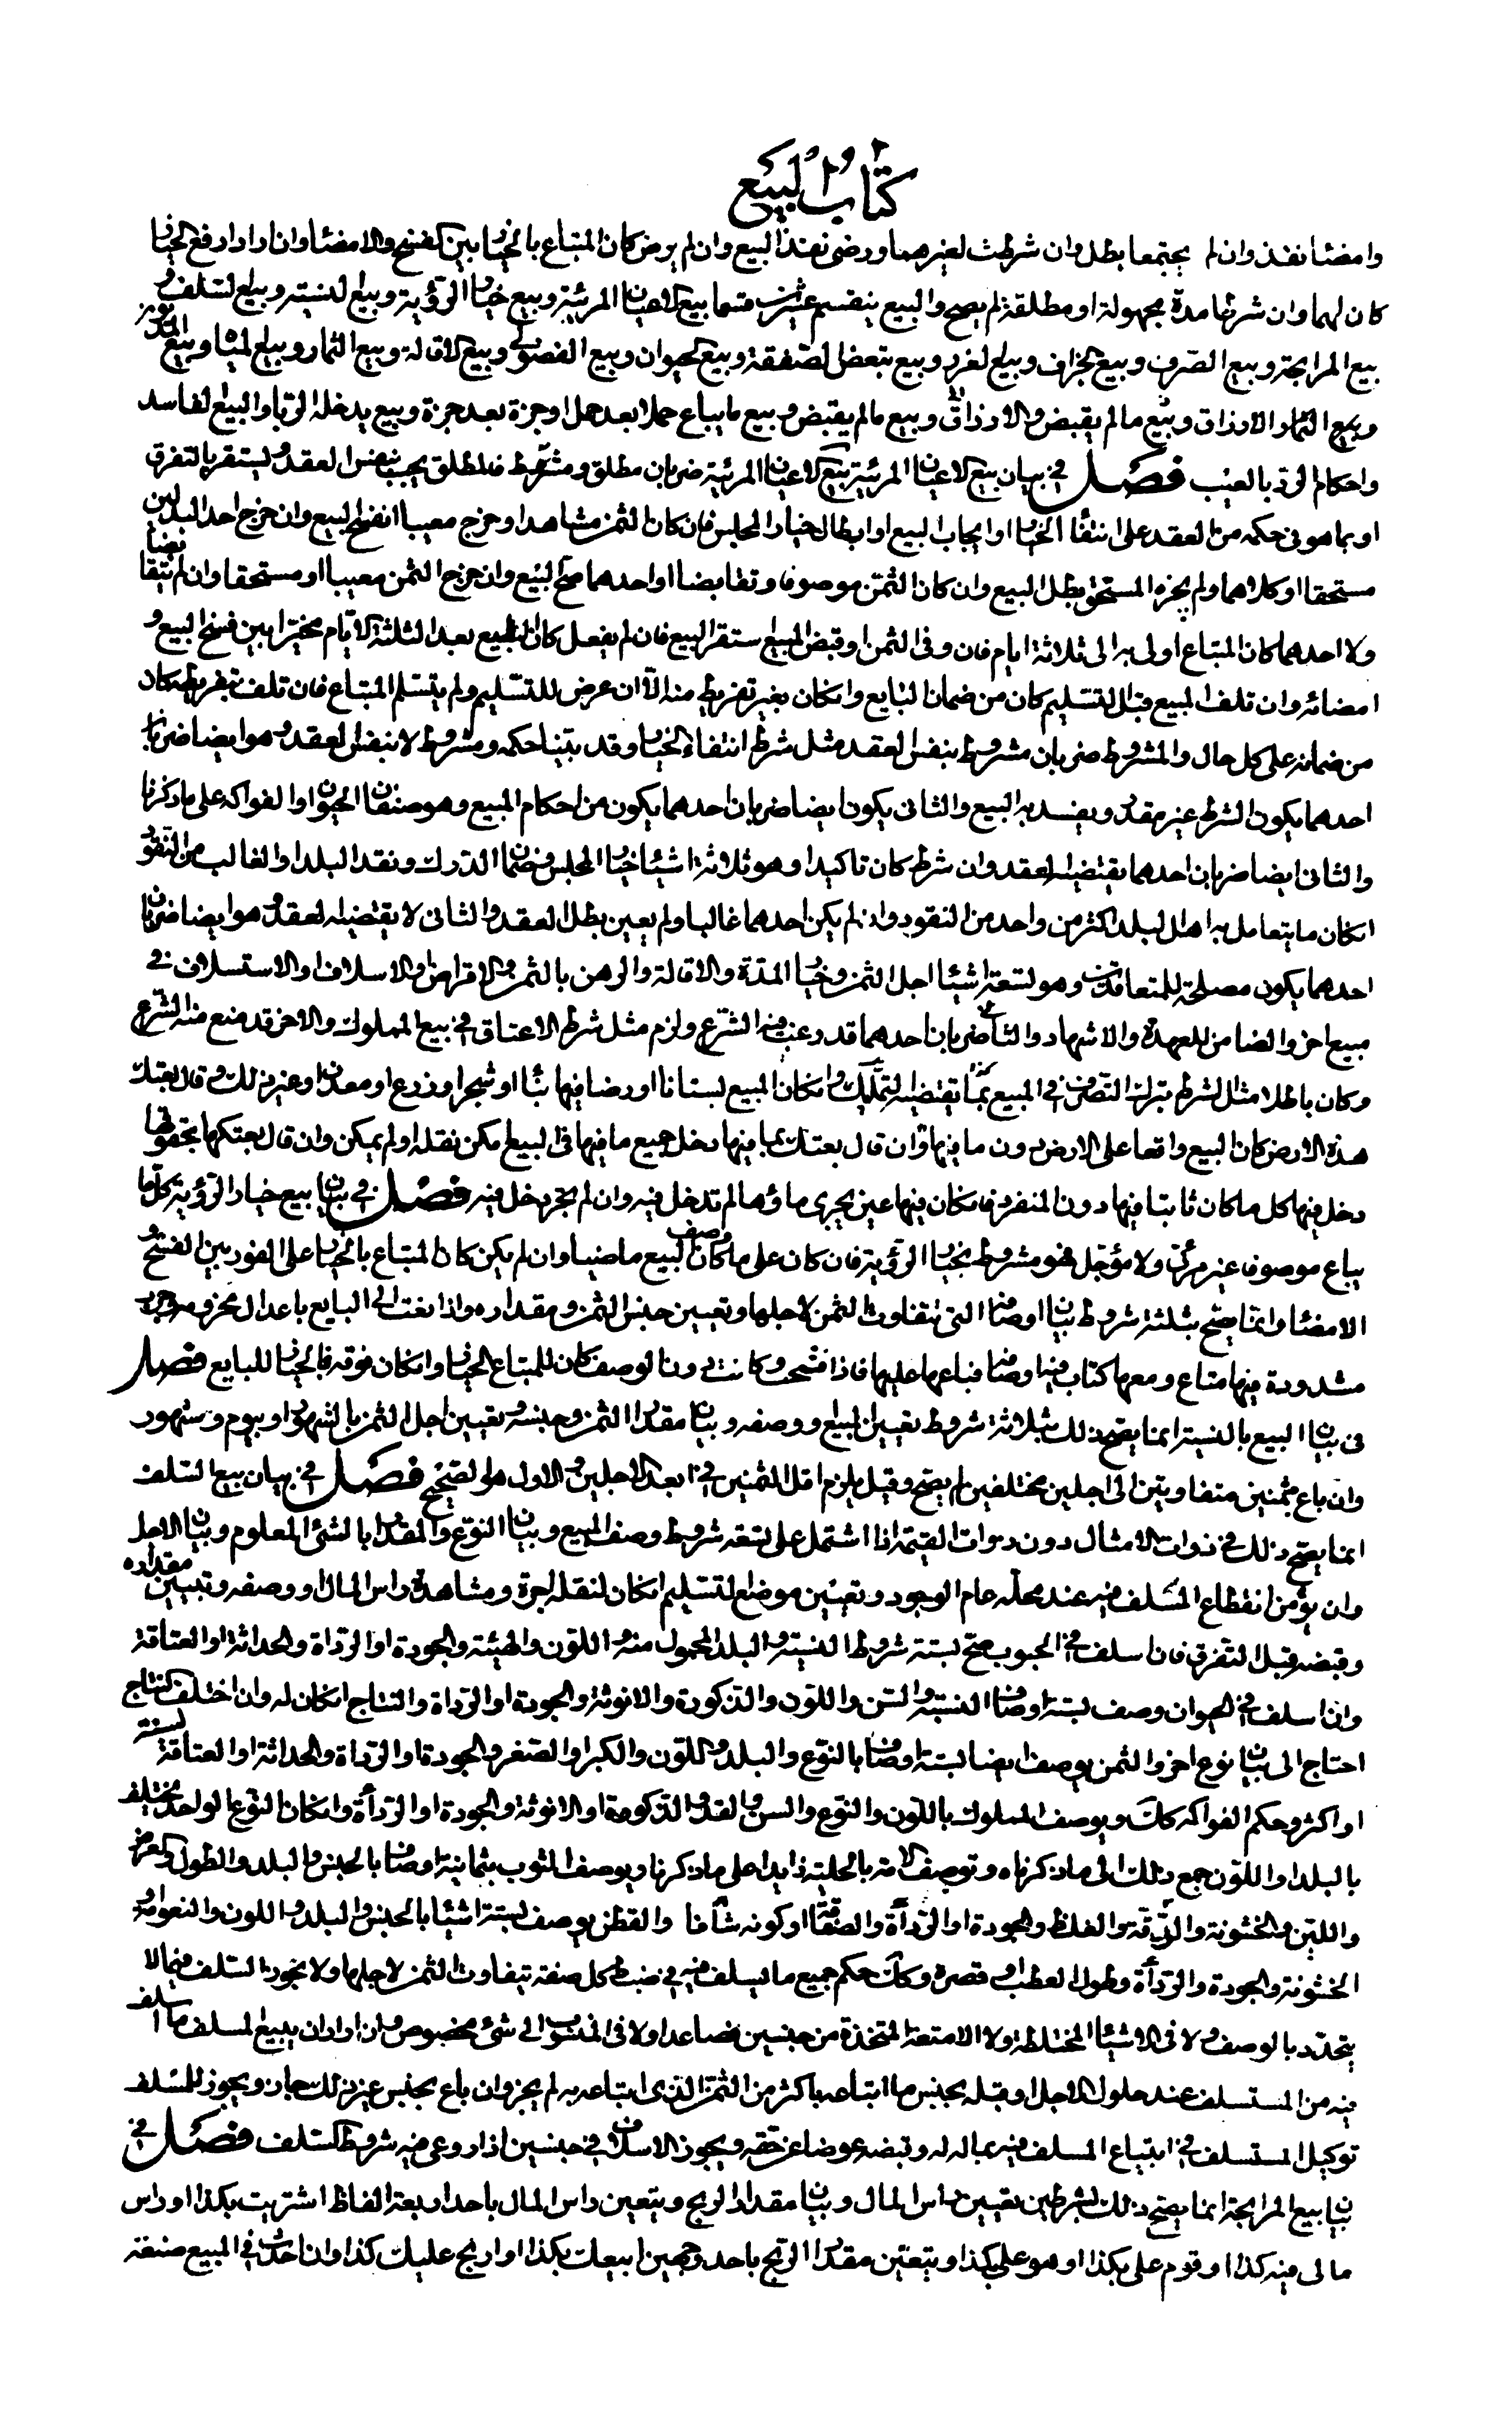 كتاب البيع
وامضيا نفذ وان لم يجتمعا بطل وان شرطت لغيرهما ورضى نفذ البيع وان لم يرض كان المبتاع بالخيار بين الفسخ والامضاء وان اراد ارفع الخيار
كان لهما وان شرطا مدة مجهولة او مطلقة لم يصح والبيع ينقسم عشرين قسما بيع الاعيان المرئية وبيع خيار الرؤية وبيع النسية وبيع السلف و
بيع المرابحة وبيع الصرف وبيع الجزاف وبيع الغرر وبيع تبعض الصفقة وبيع الحيوان وبيع الفضولى وبيع الاقالة وبيع الثمار وبيع المياه وبيع
وبيع الثمار الارزاق وبيع ما لم يقبض والارزاق وبيع ما لم يقبض وبيع ما يباع حملا بعد حمل او جزة بعد جزة وبيع يدخله الربا والبيع الفاسد
واحكام الرد بالعيب فصل فى بيان بيع الاعيان المرئية بيع الاعيان المرئية ضربان مطلق ومشروط فالمطلق يجب بنفس العقد ويستقر بالتفرق
او بما هو فى حكمه من العقد على انتفاء الخيار او ايجاب البيع او ابطال خيار المجلس فان كان الثمن مشاهدا وخرج معيبا انفسخ البيع وان خرج احد البدلين
مستحقا او كلاهما ولم يجزه المستحق بطل البيع وان كان الثمن موصوفا وتقابضا او احدهما صح البيع وان خرج الثمن معيبا او مستحقا وان لم يتقا بضا
ولا احدهما كان المبتاع اولى به الى ثلاثة ايام فان وفى الثمن او قبض المبيع استقر البيع فان لم يفعل كان البايع بعد الثلثة الايام مخيرا بين فسخ البيع و
امضائه وان تلف المبيع قبل التسليم كان من ضمان البايع وان كان بغير تفريط منه الا ان عرض للتسليم ولم يتسلم المبتاع فان تلف بتفريطه كان
من ضمانه على كل حال والمشروط ضربان مشروط بنفس العقد مثل شرط انتفاء الخيار وقد بينا حكمه ومشروط لا بنفس العقد وهو ايضا ضربان
احدهما يكون الشرط غير مقدور ويفسد به البيع والثانى يكون ايضا ضربان احدهما يكون من احكام المبيع وهو صنفان الحيوان او الفواكه على ما ذكرنا
والثانى ايضا ضربان احدهما يقتضيه العقد وان شرط كان تاكيدا وهو ثلاثة اشياء خيار المجلس وضمان الدرك ونقد البلد او الغالب من النقود
ان كان ما يتعامل به اهل البلد اكثر من واحد من النقود وان لم يكن احدهما غالبا ولم يعين بطل العقد والثانى لا يقتضيه العقد وهو ايضا ضربان
احدهما يكون مصلحة للمتعاقدين وهو تسعة اشياء اجل الثمن وخيار المدة والاقالة والرهن بالثمن والاقراض والاسلاف او الاستسلاف فى
مبيع اخر والضامن للعهدة والاشهاد والثانى ضربان احدهما قد رغب فيه الشرع ولزم مثل شرط الاعتاق فى بيع المملوك والاخر قد منع منه الشرع
وكان باطلا مثل الشرط بترك التصرف فى المبيع بما يقتضيه التمليك وان كان المبيع بستانا او ارضا فيها بناء او شجر او زرع او معدن او غير ذلك وقال بعتك
هذه الارض كان البيع واقعا على الارض دون ما فيها وان قال بعتك بما فيها دخل جميع ما فيها فى البيع امكن نقله او لم يمكن وان قال بعتكها بحقوقها
دخل فيها كل ما كان ثابتا فيها دون المنفرد فان كان فيها عين يجرى ماؤها لم تدخل فيه وان لم يجر دخل فيه فصل فى بيان بيع خيار الرؤية كل ما
يباع موصوفا غير مركز ولا مؤجل فهو مشروط بخيار الرؤية فان كان على ما وصف كان البيع ماضيا وان لم يكن كان المبتاع بالخيار على الفور بين الفسخ و
الامضاء وانما يصح بثلثة شروط بيان اوصاف التى يتفاوت الثمن لاجلها وتعيين جنس الثمن ومقداره واذا بعث الى البايع باعدال محزومة وجرب
مشدودة فيها متاع ومعها كتاب فيه اوصاف فباعها عليها فاذا فتحت وكانت دون الوصف كان للمبتاع الخيار وان كان فوقه فالخيار للبايع فصل
فى بيان البيع بالنسية انما يصح ذلك بثلاثة شروط تعيين المبيع ووصفه وبيان مقدار الثمن وجنسه وتعيين اجل الثمن بالشهور او بيوم وشهور
وان باع بثمنين متفاوتين الى اجلين مختلفين لم يصح وقيل يلزم اقل الثمنين فى ابعد الاجلين والاول هو الصحيح فصل فى بيان بيع السلف
انما يصح ذلك فى ذوات الامثال دون ذوات القيمة اذا اشتمل على تسعه شروط وصف المبيع وبيان النوع والمقدار بالشئ المعلوم وبيان الاجل
وان يؤمن انقطاع المسلف فيه عند محله عام الوجود وتعيين موضع التسليم ان كان لنقله اجرة ومشاهدة راس المال او وصفه وتبيين مقداره
وقبضه قبل التفرق فان اسلف فى الحبوب صح بستة شروط النسبة والبلد المحمول منه واللون والهيئة والجودة او الرداة والحداثة او العتاقة
وان اسلف فى الحيوان وصف بستة اوصاف النسبة والسن واللون والذكورة والانوثة والجودة او الرداة والنتاج ان كان له وان اختلف النتاج
احتاج الى بيان نوع اخر والثمن يوصف ايضا بستة اوصاف بالنوع والبلد واللون والكبر او الصغر والجودة او الرداة والحداثة او العتاقة لسنة
او اكثر وحكم الفواكه كذلك ويوصف المملوك باللون والنوع والسن والقد والذكورة او الانوثة والجودة او الرداءة وان كان النوع الواحد مختلف
بالبلد او اللون جمع ذلك الى ما ذكرناه وتوصف الامة بالحلية زايدا على ما ذكرنا ويوصف الثوب بثمانية اوصاف بالجنس والبلد والطول والعرض
واللين والخشونة والدقة والغلظ والجودة او الرداءة والصفاقة او كونه شافا والقطن يوصف بستة اشياء بالجنس والبلد واللون والنعومة او
الخشونة والجودة والرداءة وطول العطب او قصره وكذلك حكم جميع ما يسلف فيه فى ضبط كل صفة يتفاوت الثمن لاجلها ولا يجوز السلف فيما لا
يتحدد بالوصف ولا فى الاشياء المختلطة ولا الامتعة المتخذة من جنسين فصاعدا ولا فى المنسوب الى شئ مخصوص وان اراد ان يبيع المسلف ما اسلف
فيه من المستسلف عند حلول الاجل او قبله بجنس ما ابتاعه باكثر من الثمن الذى ابتاعه به لم يجز وان باع بجنس غير ذلك جاز ويجوز للمسلف
توكيل المستسلف فى ابتياع المسلف فيه بماله له وقبضه عوضا عن حقه ويجوز الاسلاف فى جنسين اذا روعى فيه شروط السلف فصل فى
بيان بيع المرابحة انما يصح ذلك بشرطين تعيين راس المال وبيان مقدار الربح ويتعين راس المال باحد اربعة الفاظ اشتريت بكذا او راس
مالى فيه كذا او قوم على بكذا او هو على بكذا ويتعين مقدار الربح باحد وجهين ابيعك بكذا او اربح عليك كذا وان احدث فى المبيع صنعة